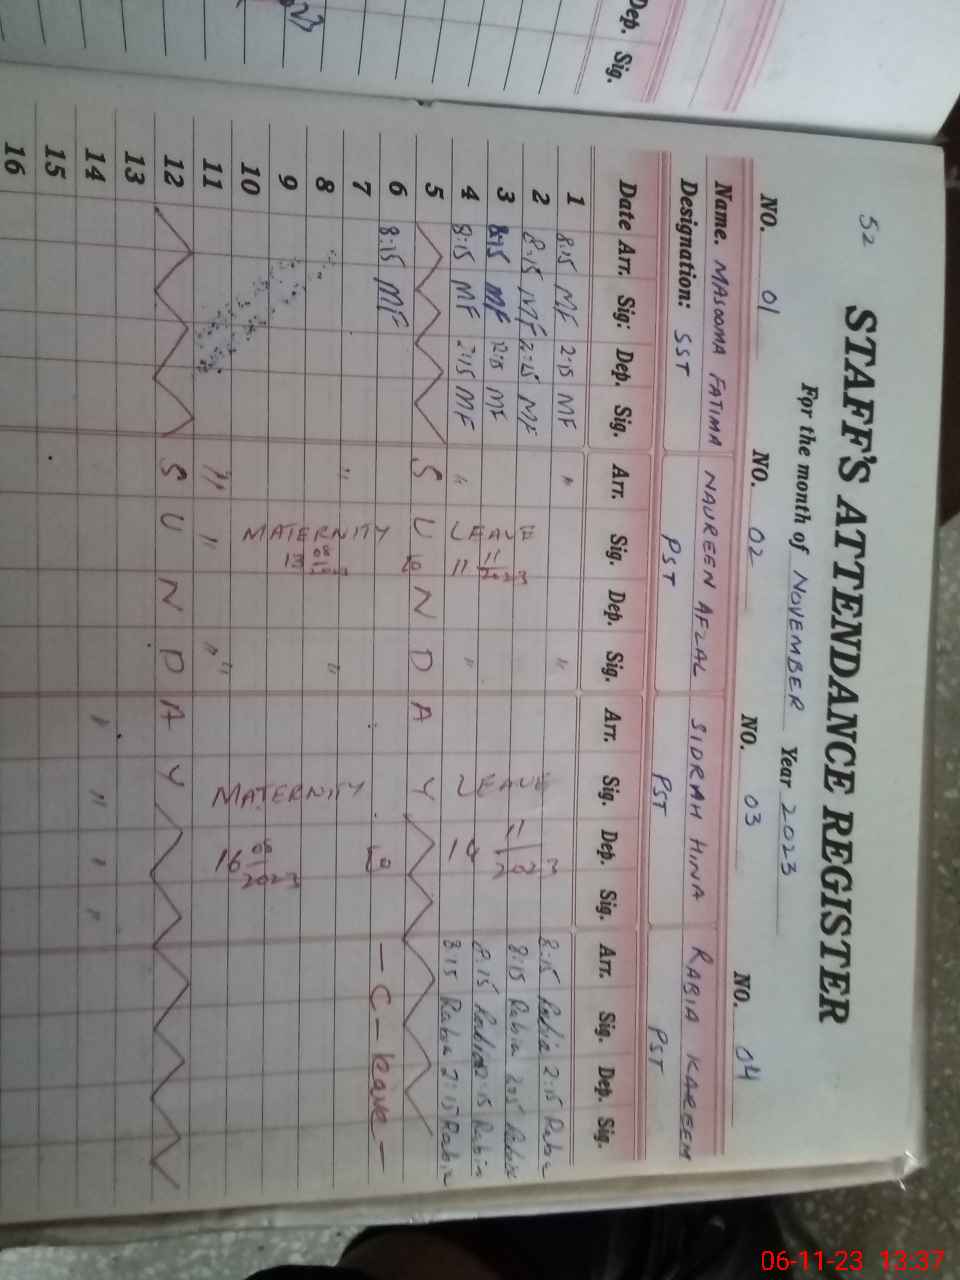 Dep. Sig.
52
STAFF'S ATTENDANCE REGISTER
For the month of NOVEMBER Year 2023
NO. 01 NO. 02 NO. 03 NO. 04
Name. MASOOMA FATIMA NAUREEN AFZAL SIDRAH HINA RABIA KAREEM
Designation: SST PST PST PST
Date Arr. Sig: Dep. Sig. Arr. Sig. Dep. Sig. Arr. Sig. Dep. Sig. Arr. Sig. Dep. Sig.
1 8:15 MF 2:15 MF " " 8:15 Rabia 2:15 Rabia
2 8:15 MF 2:15 MF LEAVE 11/2023 LEAVE 11/2023 8:15 Rabia Rabia
3 8:15 MF 12:15 MF 8:15 Rabia 2:15 Rabia
4 8:15 MF 2:15 MF " 11 " 14 8:15 Rabia 2:15 Rabia
5 S U N D A Y
6 8:15 MF to to - C - leave -
7 " MATERNITY MATERNITY
8 08 "
9 13
10 08/2023
11 " " " " 16
12 S U N D A Y
13
14 " " " "
15
16
06-11-23 13:37